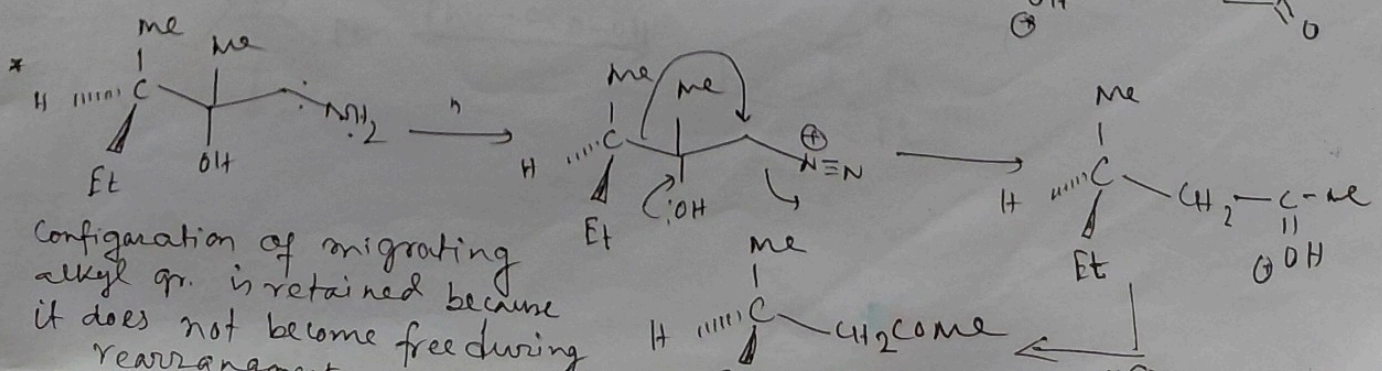 OH
⊕
O
*
Me
Me
H
C
NH2
Et
OH
Me
Me
H
C
⊕
N≡N
Et
:OH
Me
H
C
CH2-C-Me
Et
⊕OH
Configaration of migrating
alkyl gr. is retained because
it does not become free during
Me
H
C
CH2COMe